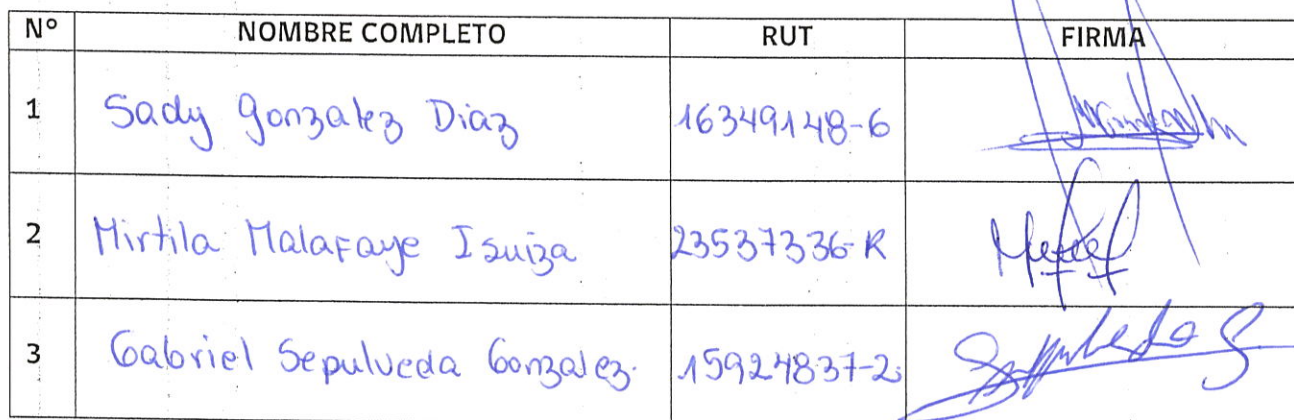 N° NOMBRE COMPLETO RUT FIRMA
1 Sady Gonzalez Diaz 16349148-6
2 Mirtila Malafaye Isuiza 23537336-K
3 Gabriel Sepulveda Gonzalez. 15924837-2